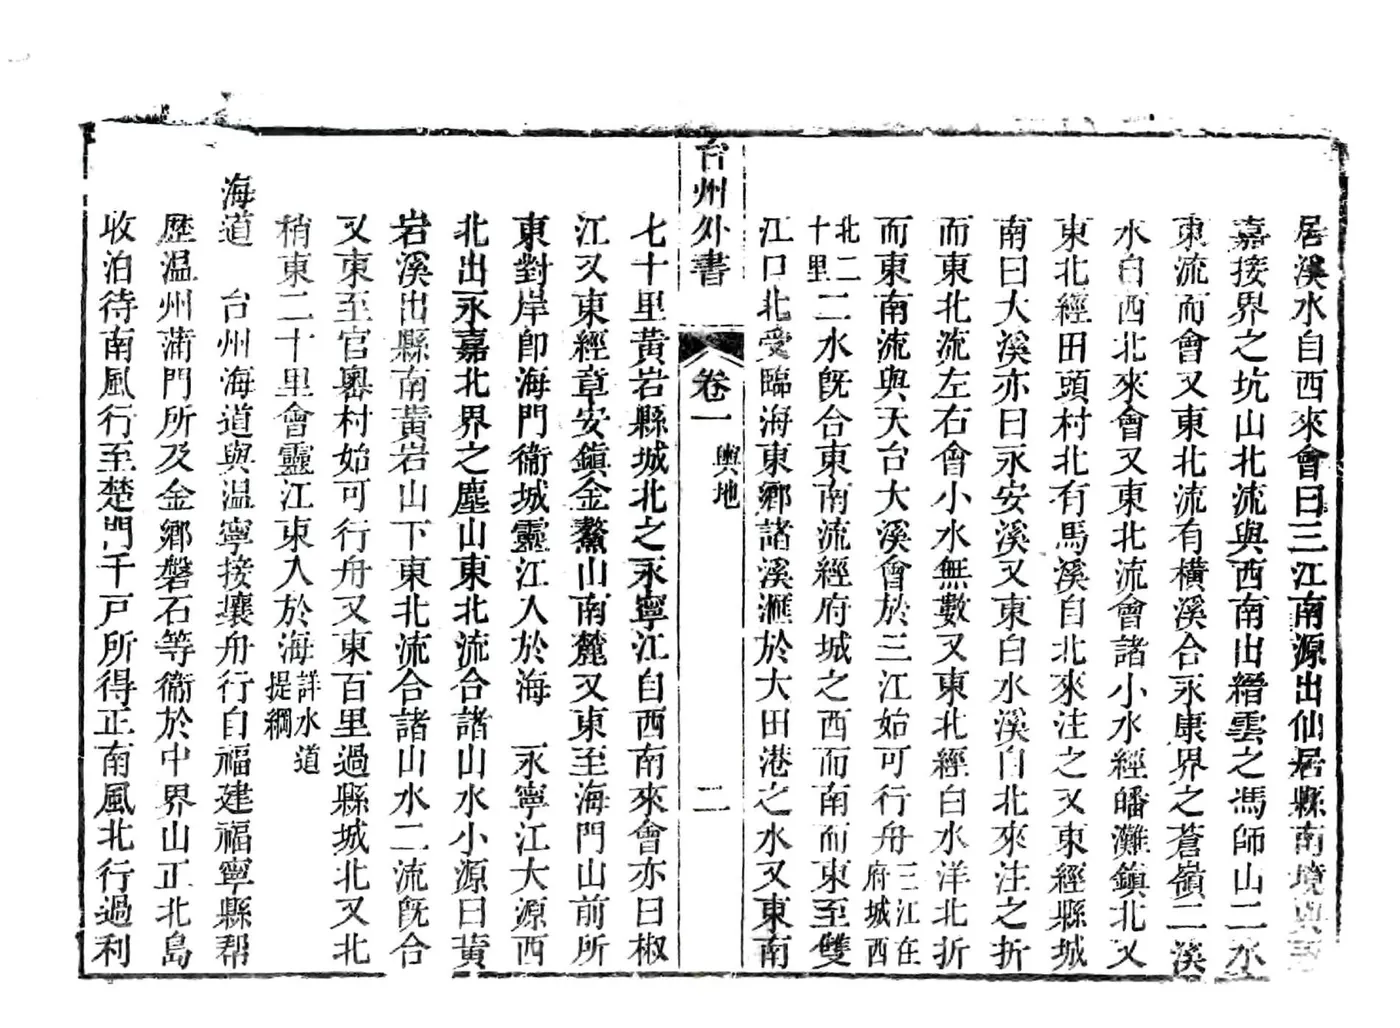 居溪水自西來會曰三江南源出仙居縣南境與
嘉接界之坑山北流與西南出縉雲之馮師山二水
東流而會又東北流有橫溪合永康界之蒼嶺二溪
水自西北來會又東北流會諸小水經皤灘鎮北又
東北經田頭村北有馬溪自北來注之又東經縣城
南曰大溪亦曰永安溪又東白水溪自北來注之折
而東北流左右會小水無數又東北經白水洋北折
而東南流與天台大溪會於三江始可行舟三江在府城西
北二十里二水既合東南流經府城之西而南而東至雙
江口北受臨海東鄉諸溪滙於大田港之水又東南
台州外書
卷一
輿地
二
七十里黃岩縣城北之永寧江自西南來會亦曰椒
江又東經章安鎮金鰲山南麓又東至海門山前所
東對岸卽海門衞城靈江入於海 永寧江大源西
北出永嘉北界之塵山東北流合諸山水小源曰黃
岩溪出縣南黃岩山下東北流合諸山水二流旣合
又東至官嶴村始可行舟又東百里過縣城北又北
稍東二十里會靈江東入於海詳水道提綱
海道 台州海道與溫寧接壤舟行自福建福寧縣帮
歷温州蒲門所及金鄉磐石等衞於中界山正北島
收泊待南風行至楚門千戸所得正南風北行過利